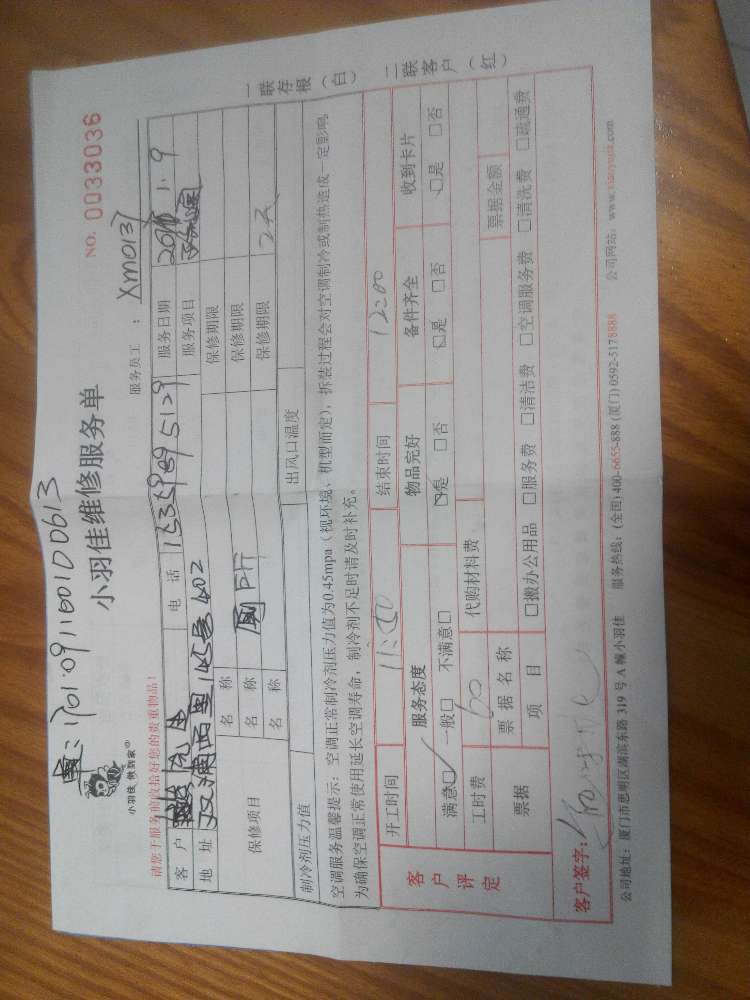 1701091160100613
小羽佳 帮到家
小羽佳维修服务单
NO. 0033036
请您于服务前收拾好您的贵重物品！
服务员工：XM0137
客户 先生 电话 15359895129 服务日期 1.9
地址 双浦西里 号 402 服务项目
保修项目 名称 保修期限
名称 厕所 保修期限
名称 保修期限
制冷剂压力值 出风口温度
空调服务温馨提示：空调正常制冷剂压力值为0.45mpa（视环境、机型而定），拆装过程会对空调制冷或制热造成一定影响。
为确保空调正常使用延长空调寿命，制冷剂不足时请及时补充。
一联存根（白） 二联客户（红）
开工时间 结束时间 12:00
客户评定
服务态度 物品完好 备件齐全 收到卡片
满意□ 一般□ 不满意□ □是 □否 □是 □否 □是 □否
工时费 60 代购材料费 票据金额
票据 票据名称
项目 □搬办公用品 □服务费 □清洁费 □空调服务费 □清洗费 □疏通费
客户签字：
公司地址：厦门市思明区湖滨东路 319 号 A 幢小羽佳 服务热线：(全国)400-6655-888 (厦门)0592-5178888 公司网站：www.xiaoyujia.com